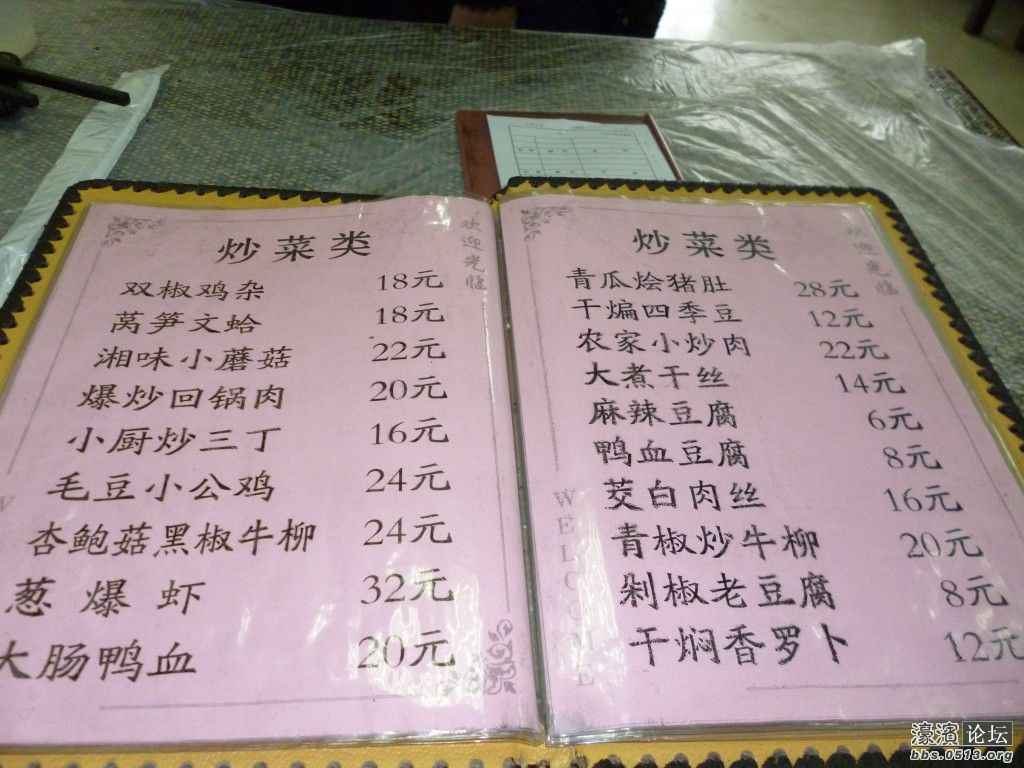 炒菜类
欢迎光临
双椒鸡杂 18元
莴笋文蛤 18元
湘味小蘑菇 22元
爆炒回锅肉 20元
小厨炒三丁 16元
毛豆小公鸡 24元
杏鲍菇黑椒牛柳 24元
葱爆虾 32元
大肠鸭血 20元
炒菜类
欢迎光临
青瓜烩猪肚 28元
干煸四季豆 12元
农家小炒肉 22元
大煮干丝 14元
麻辣豆腐 6元
鸭血豆腐 8元
茭白肉丝 16元
青椒炒牛柳 20元
剁椒老豆腐 8元
干焖香罗卜 12元
WELCOME
濠滨论坛
bbs.0513.org